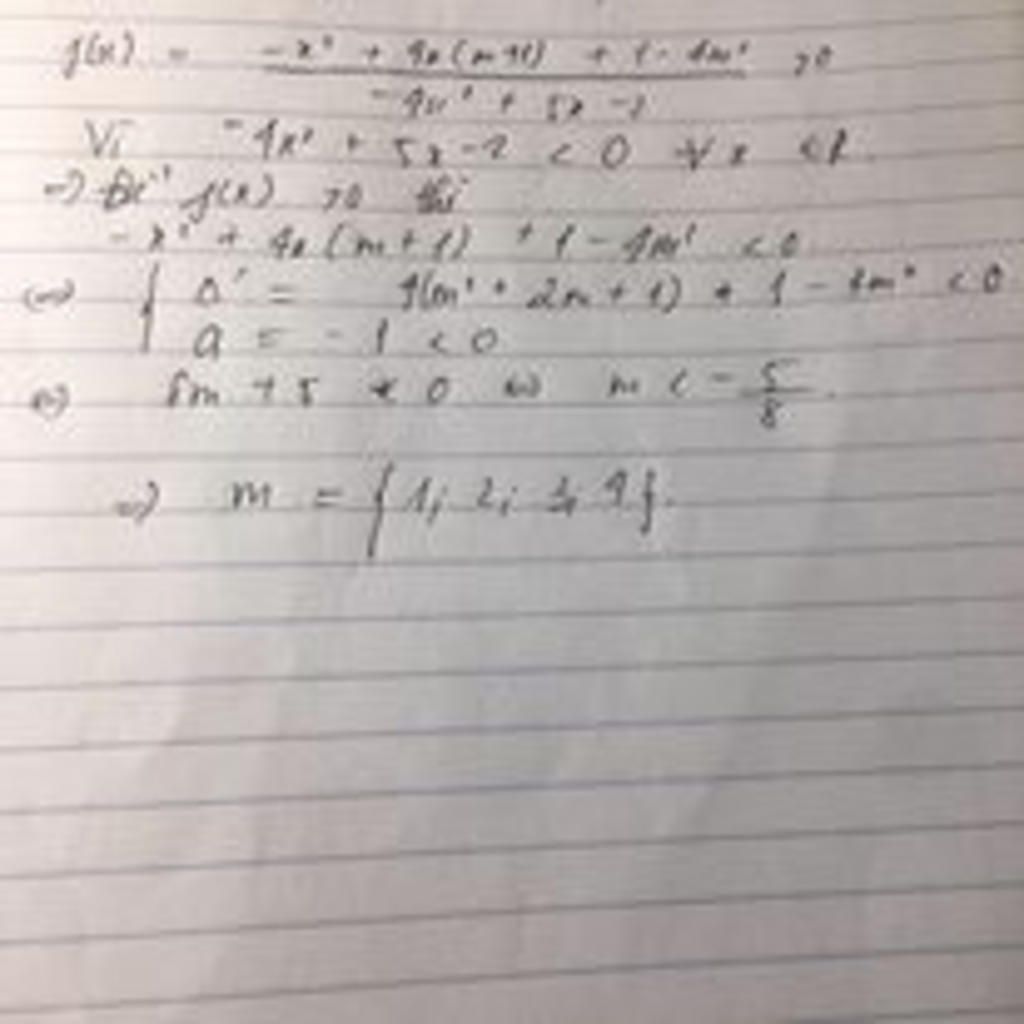 f(x) = (-x² + 4x(m+1) + 1 - 4m²) / (-4x² + 5x - 2) > 0
Vì -4x² + 5x - 2 < 0 ∀x ∈ R.
=> Để f(x) > 0 thì
-x² + 4x(m+1) + 1 - 4m² < 0
<=> { Δ' = 4(m² + 2m + 1) + 1 - 4m² < 0
a = -1 < 0
<=> 8m + 5 < 0 <=> m < -5/8.
=> m = {1; 2; 3; 4}.